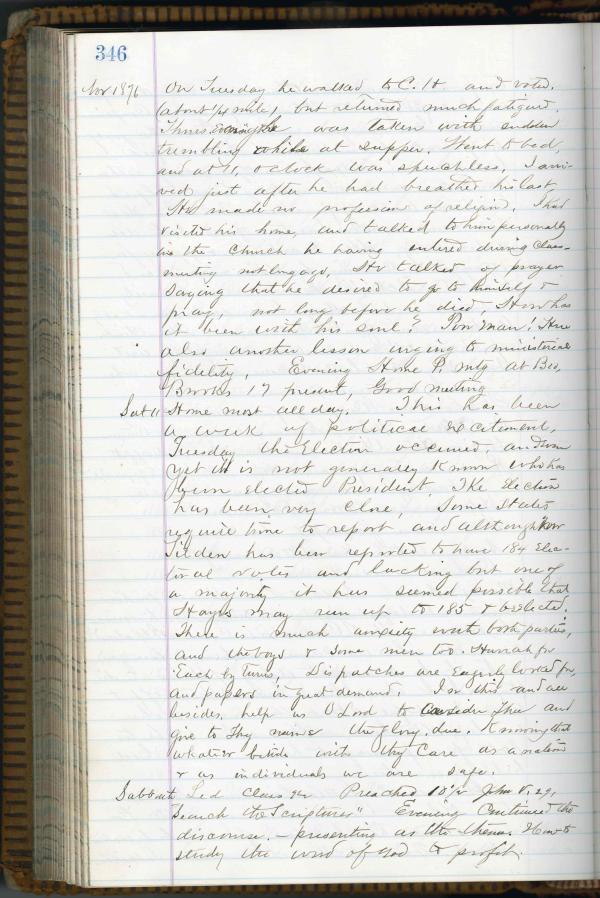 346
Nov 1876 On Tuesday he walked to C. H and voted.
(about 1/4 mile) but returned much fatigued.
Thurs Evening he was taken with sudden
trembling while at supper. Went to bed,
and at 11, o clock was speechless. I arri-
ved just after he had breathed his last,
He made no profession of religion. I had
visited his home, and talked to him personally
in the Church he having entered during Class-
meeting not long ago, He talked of prayer
saying that he desired to go to himself &
pray, not long before he died, How has
it been with his soul? Poor man! Here
also another lesson urging to ministerial
fidelity, Evening Home P. mtg at Bro,
Brooks 17 present, Good meeting
Sat 11 Home most all day. This has been
a week of political excitement,
Tuesday the Election occurred, and
yet it is not generally known who has
been elected President. The Election
has been very close, Some States
require time to report and although
Tilden has been reported to have 184 Elec-
toral votes and lacking but one of
a majority it has seemed possible that
Hayes may run up to 185 & be elected.
There is much anxiety with both parties,
and the boys & some men too. Hurrah for
Each by turns, Dispatches are Eagerly looked for,
and papers in great demand. In this and all
besides, help us O Lord to Consider Thee and
give to Thy name the glory due. Knowing that
whatever betide with thy Care as a nation
& as individuals we are safe.
Sabbath Led class 9 Preached 10 1/2 John V. 39,
"Search the Scriptures" Evening Continued the
discourse. – presenting as the theme. How to
study the word of God to profit.